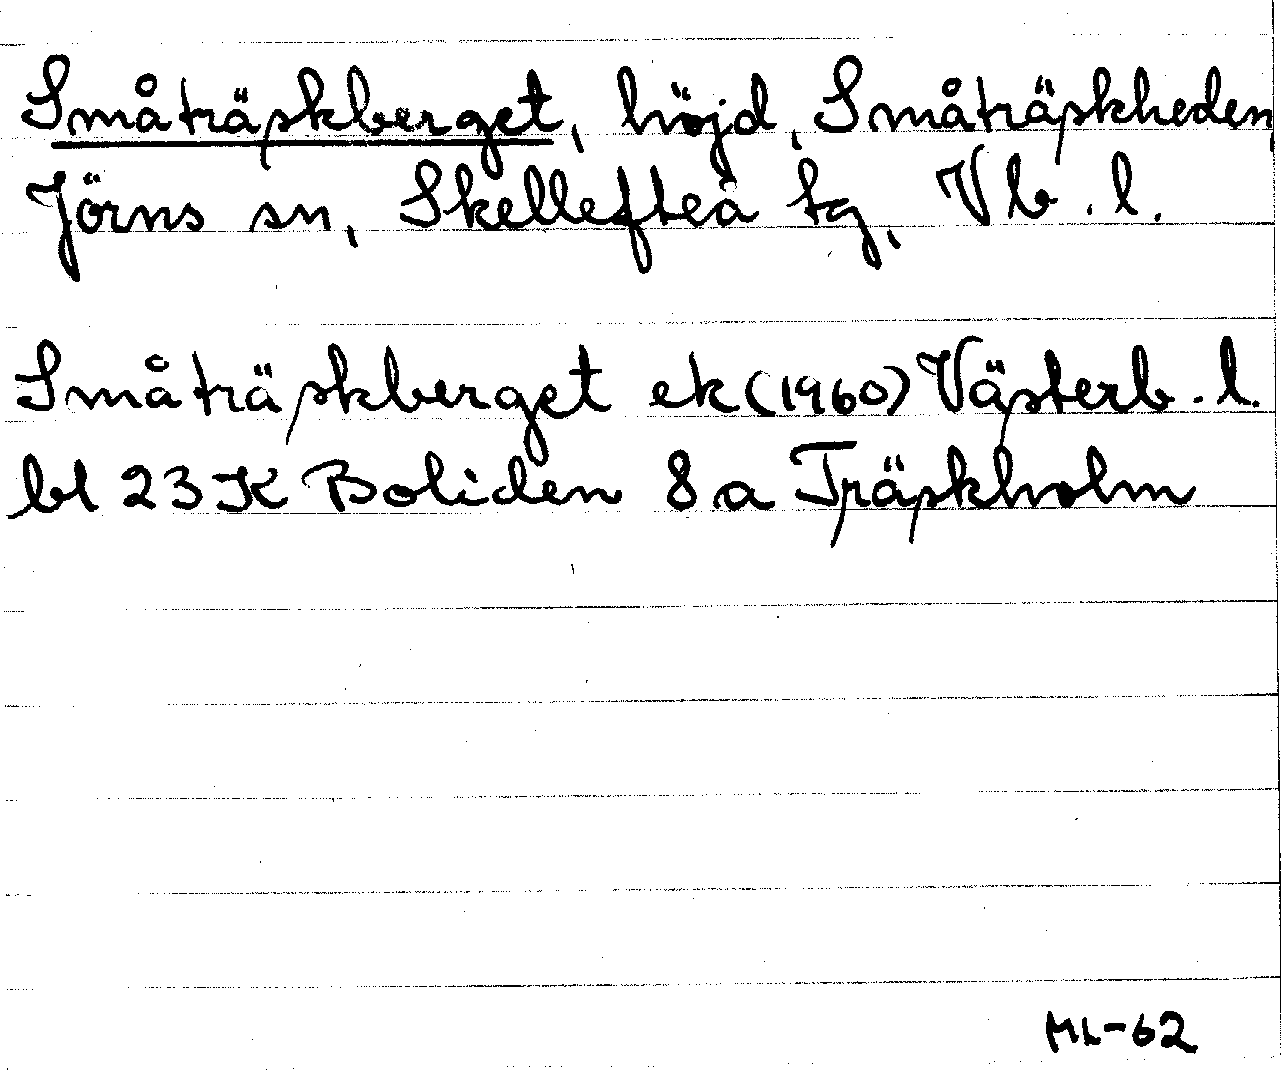 Småträskberget, höjd, Småträskheden,
Jörns sn, Skellefteå tg, Vb. l.
Småträskberget ek (1960) Västerb. l.
bl 23 K Boliden 8 a Träskholm
ML-62